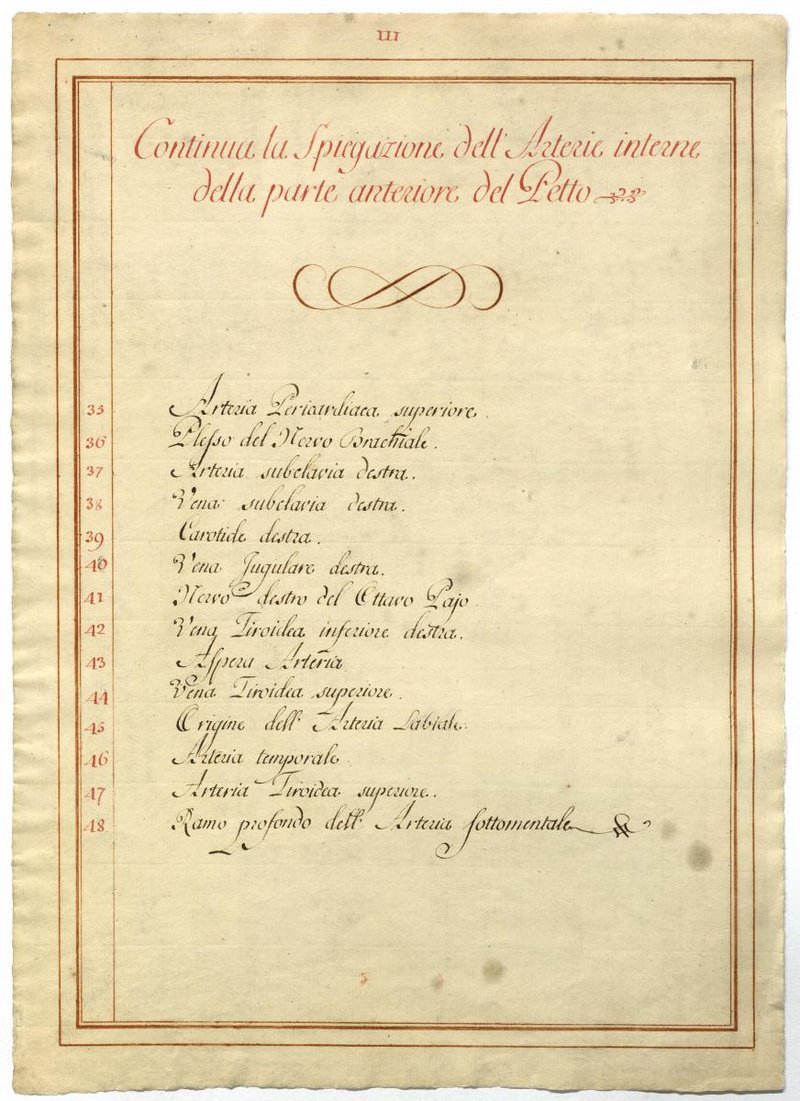 III
Continua la Spiegazione dell' Arterie interne
della parte anteriore del Petto
35 Arteria Pericardiaca superiore.
36 Plesso del Nervo Brachiale.
37 Arteria subclavia destra.
38 Vena subclavia destra.
39 Carotide destra.
40 Vena Jugulare destra.
41 Nervo destro del Ottavo Pajo.
42 Vena Tiroidea inferiore destra.
43 Aspera Arteria.
44 Vena Tiroidea superiore.
45 Origine dell' Arteria Labiale.
46 Arteria temporale.
47 Arteria Tiroidea superiore.
48 Ramo profondo dell' Arteria sottomentale